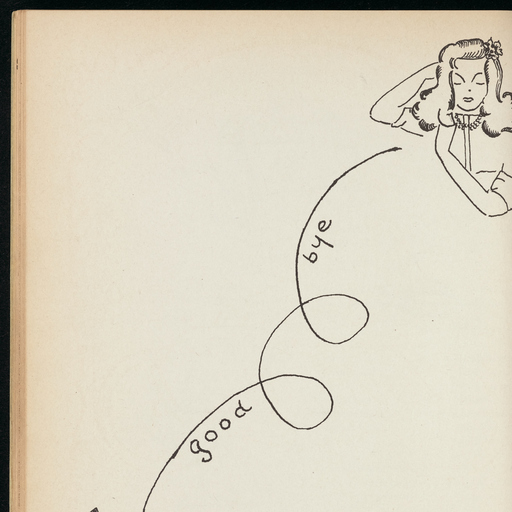 good
bye